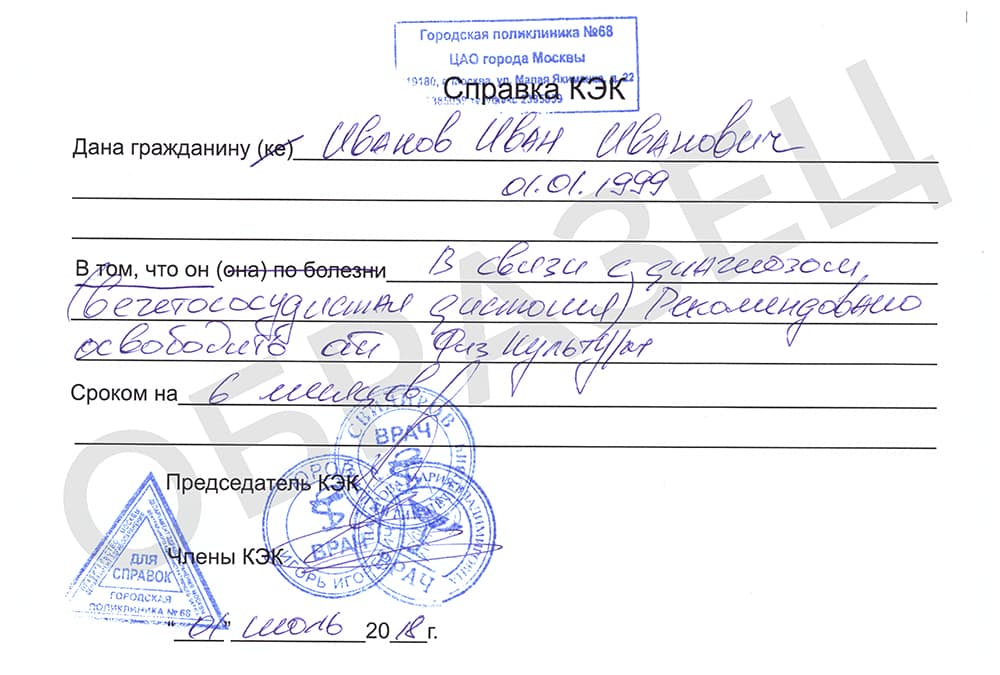 Городская поликлиника №68
ЦАО города Москвы
г. Москва, ул. Малая Якиманка, д. 22
Справка КЭК
Дана гражданину (ке) Иванов Иван Иванович
01.01.1999
В том, что он (она) по болезни В связи с диагнозом
(вегетососудистая дистония) Рекомендовано
освободить от физкультуры
Сроком на 6 месяцев
ОБРАЗЕЦ
ВРАЧ
Председатель КЭК
ВРАЧ
ИГОРЬ
ВРАЧ
Члены КЭК
ДЛЯ
СПРАВОК
ГОРОДСКАЯ
ПОЛИКЛИНИКА № 68
"01" июль 2018 г.